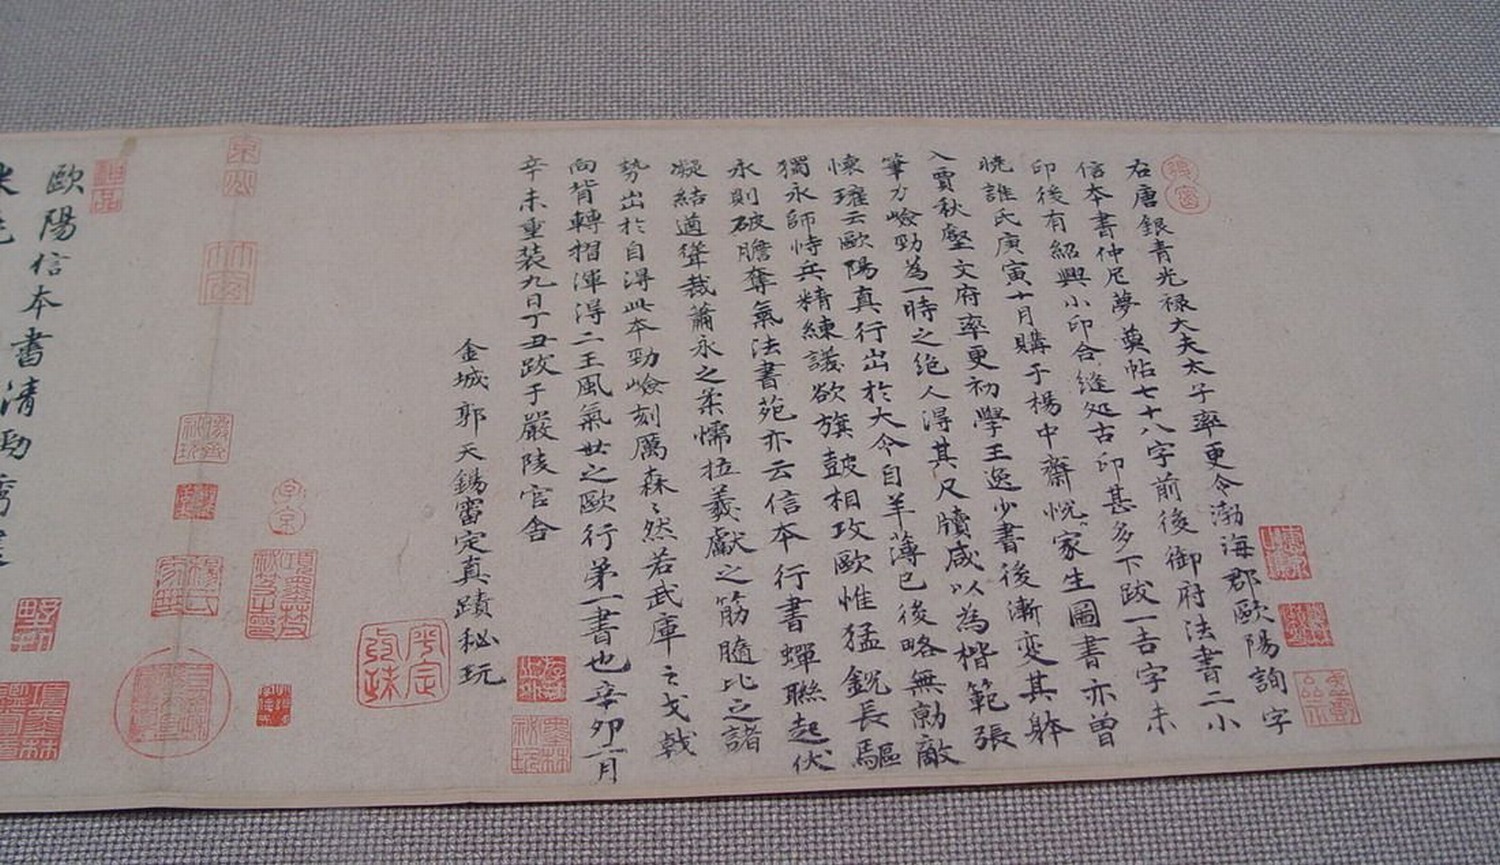 右唐銀青光禄大夫太子率更令渤海郡歐陽詢字
信本書仲尼夢奠帖七十八字前後御府法書二小
印後有紹興小印合縫処古印甚多下跋一吉字未
曉誰氏庚寅十月購于楊中齋恱家生圖書亦曽
入賈秋壑文府率更初學王逸少書後漸變其躰
筆力嶮勁為一時之絶人淂其尺牘咸以為楷範張
懐瓘云歐陽真行出於大令自羊薄已後略無勍敵
獨永師恃兵精練議欲旗鼓相攻歐惟猛鋭長驅
永則破膽奪氣法書苑亦云信本行書蟬聯起伏
凝結遒聳裁蕭永之柔懦拉羲獻之筋髓比之諸
勢出於自淂此本勁嶮刻厲森〻然若武庫之戈戟
向背轉摺渾淂二王風氣世之歐行第一書也辛卯二月
辛未重装九日丁丑跋于嚴陵官舎
金城郭天錫審定真蹟秘玩
歐陽信本書清勁